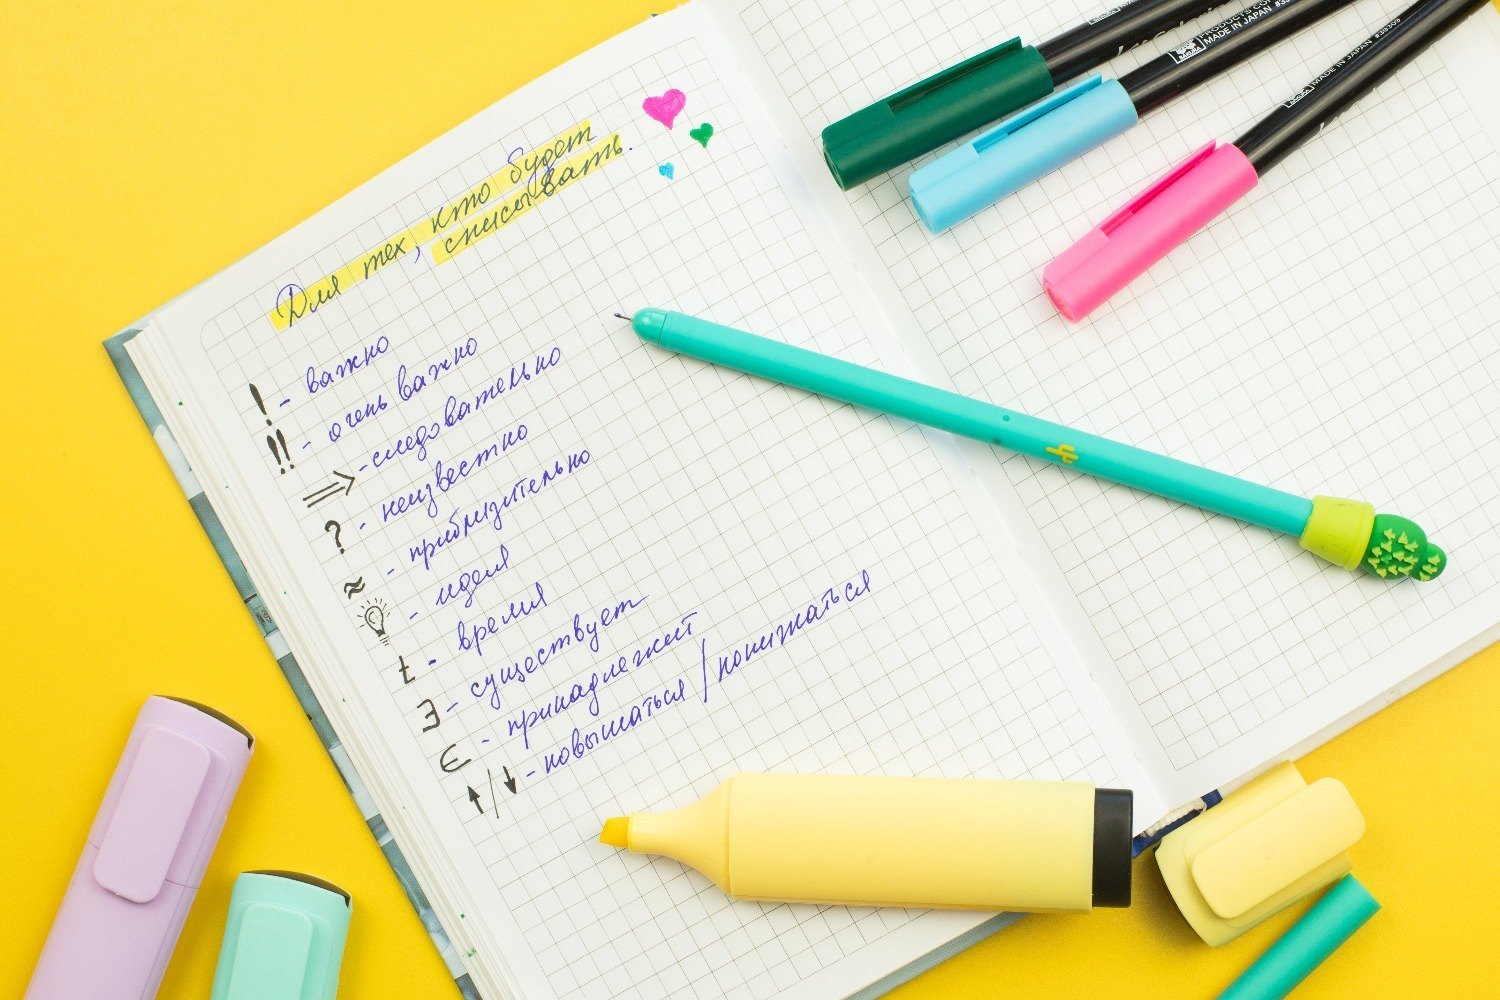 Для тех, кто будет
списывать.
! - важно
!! - очень важно
⇒ - следовательно
? - неизвестно
≈ - приблизительно
- идея
t - время
∃ - существует
∈ - принадлежит
↑/↓ - повышаться/понижаться
MADE IN JAPAN
MADE IN JAPAN #39309